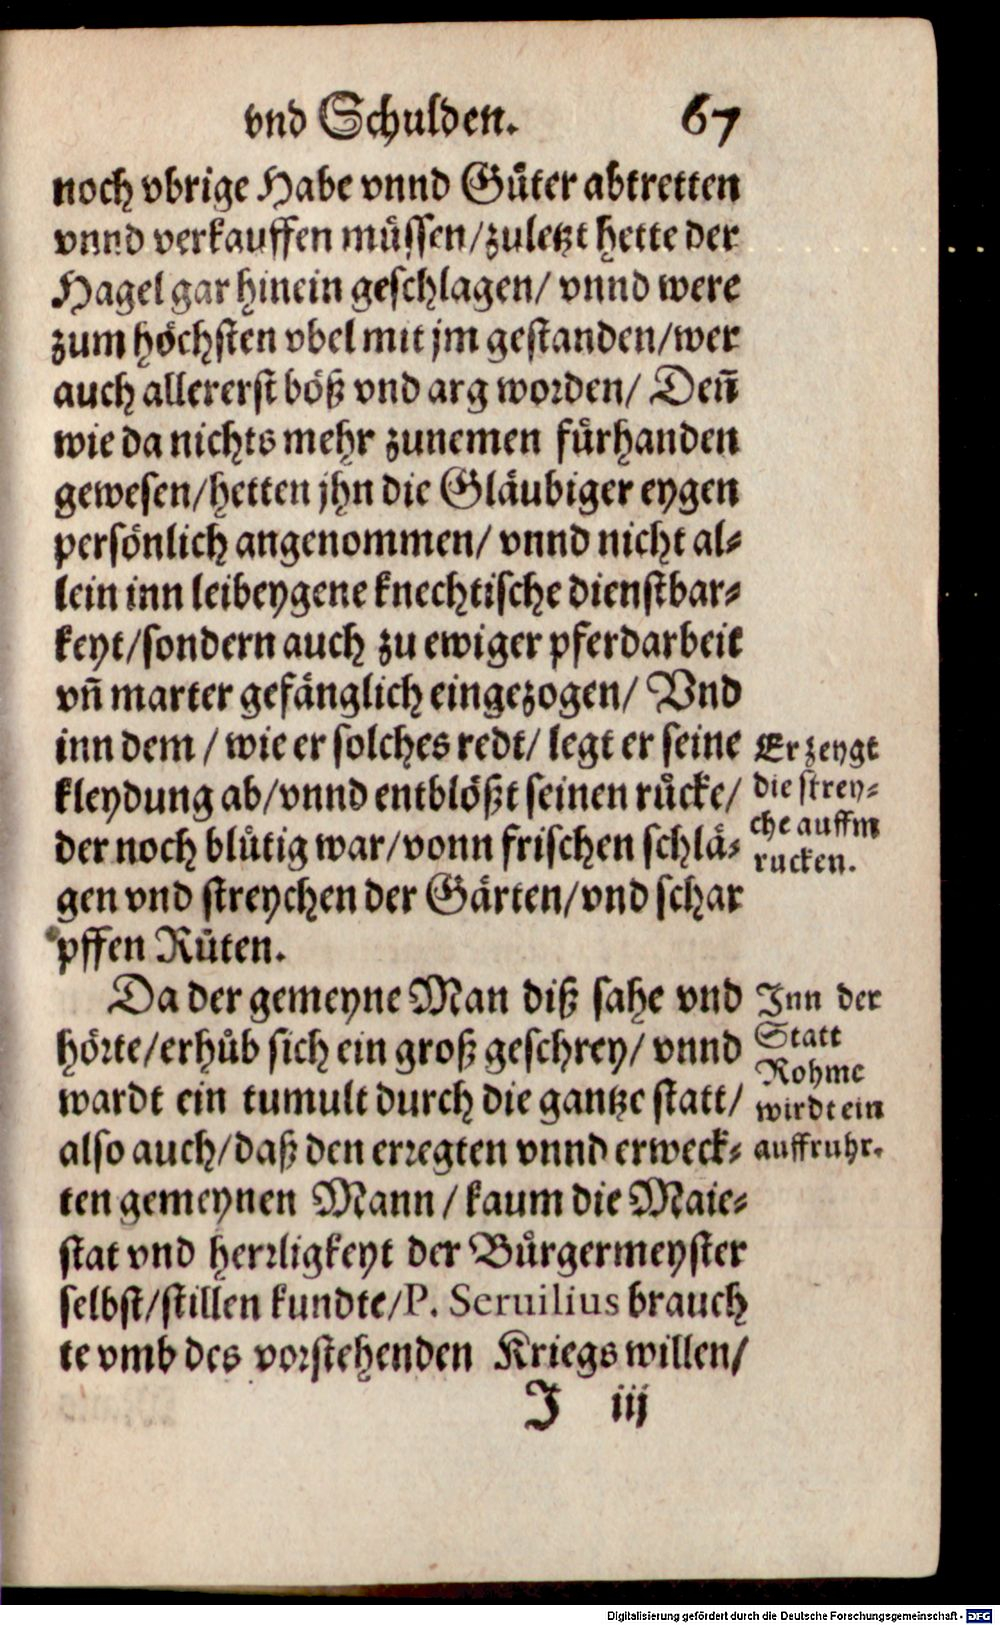 vnd Schulden. 67
noch vbrige Habe vnnd Gůter abtretten
vnnd verkauffen můssen/zuletzt hette der
Hagel gar hinein geschlagen/ vnnd were
zum höchsten vbel mit jm gestanden/wer
auch allererst böß vnd arg worden/ Deñ
wie da nichts mehr zunemen fürhanden
gewesen/hetten jhn die Gläubiger eygen
persönlich angenommen/ vnnd nicht al-
lein inn leibeygene knechtische dienstbar-
keyt/sondern auch zu ewiger pferdarbeit
vñ marter gefänglich eingezogen/ Vnd
inn dem / wie er solches redt/ legt er seine
kleydung ab/vnnd entblößt seinen růcke/
der noch blůtig war/vonn frischen schlä-
gen vnd streychen der Gärten/vnd schar
pffen Růten.
Er zeygt
die strey-
che auffm
rucken.
Da der gemeyne Man diß sahe vnd
hörte/erhůb sich ein groß geschrey/ vnnd
wardt ein tumult durch die gantze statt/
also auch/daß den erregten vnnd erweck-
ten gemeynen Mann / kaum die Maie-
stat vnd herrligkeyt der Bürgermeyster
selbst/stillen kundte/P. Seruilius brauch
te vmb des vorstehenden Kriegs willen/
Inn der
Statt
Rohme
wirdt ein
auffruhr.
J iij
Digitalisierung gefördert durch die Deutsche Forschungsgemeinschaft - DFG